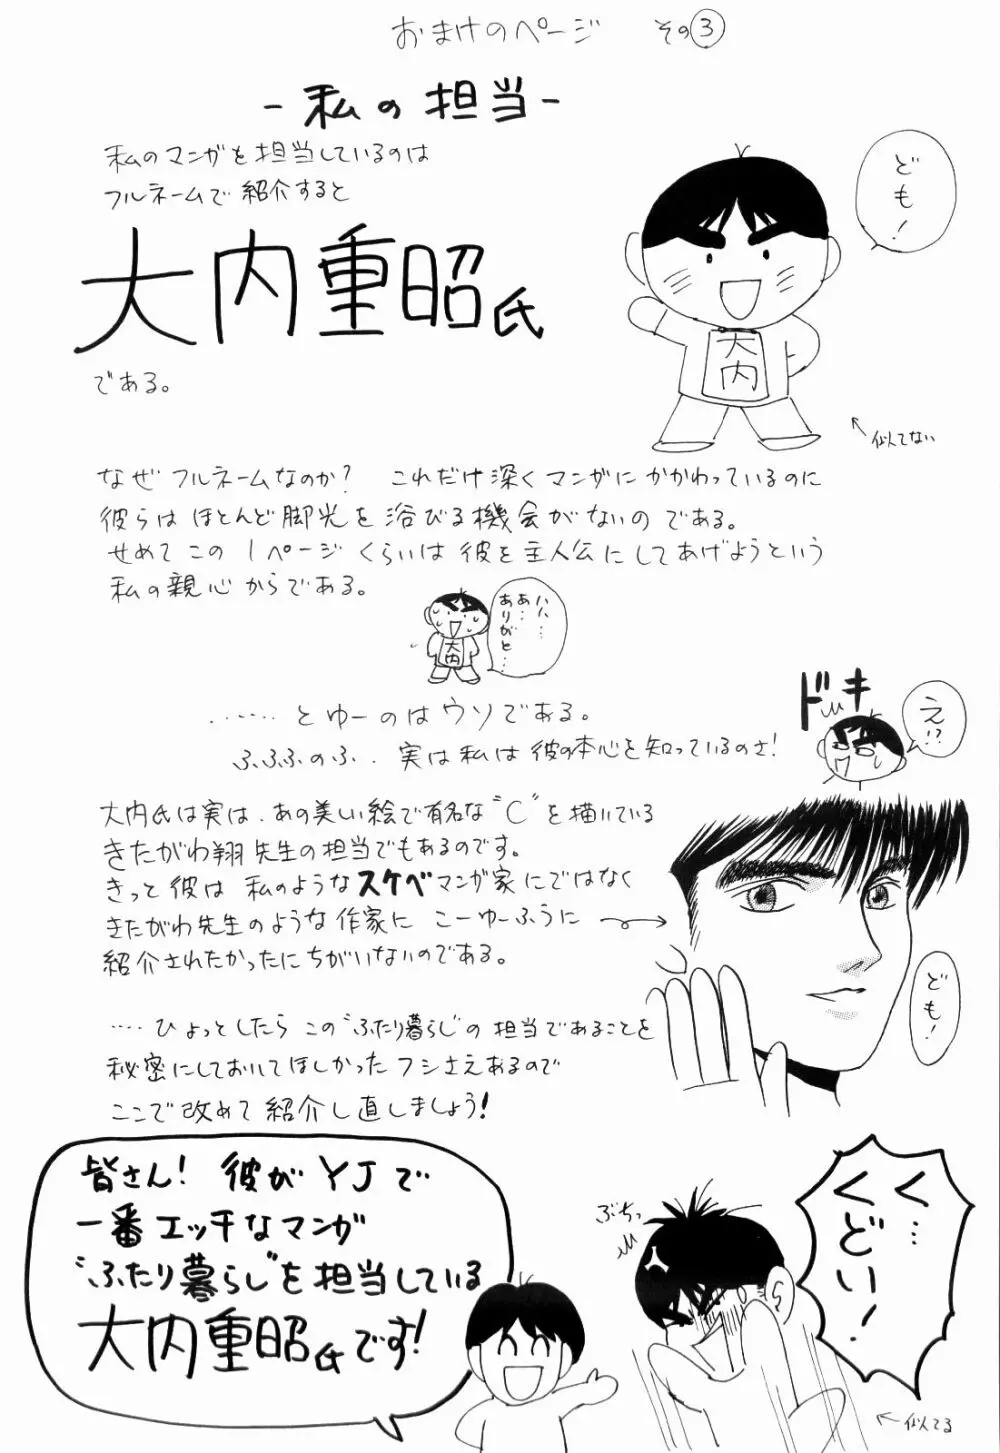 おまけのページ　その③
-私の担当-
私のマンガを担当しているのは
フルネームで紹介すると
大内重昭氏
である。
ども!
大内
←似てない
なぜフルネームなのか?　これだけ深くマンガにかかわっているのに
彼らはほとんど脚光を浴びる機会がないのである。
せめてこの1ページくらいは彼を主人公にしてあげようという
私の親心からである。
ハハ…
あ…
ありがと…
大内
……とゆーのはウソである。
ふふふのふ. 実は私は彼の本心を知っているのさ!
ドキ
え!?
大内氏は実は、あの美しい絵で有名な“C”を描いている
きたがわ翔先生の担当でもあるのです。
きっと彼は私のようなスケベマンガ家にではなく
きたがわ先生のような作家にこーゆーふうに
紹介されたかったにちがいないのである。
ども!
….ひょっとしたらこの“ふたり暮らし”の担当であることを
秘密にしておいてほしかったフシさえあるので
ここで改めて紹介し直しましょう!
皆さん!彼がYJで
一番エッチなマンガ
“ふたり暮らし”を担当している
大内重昭氏です!
ぶちっ
く…
くどい!
←似てる